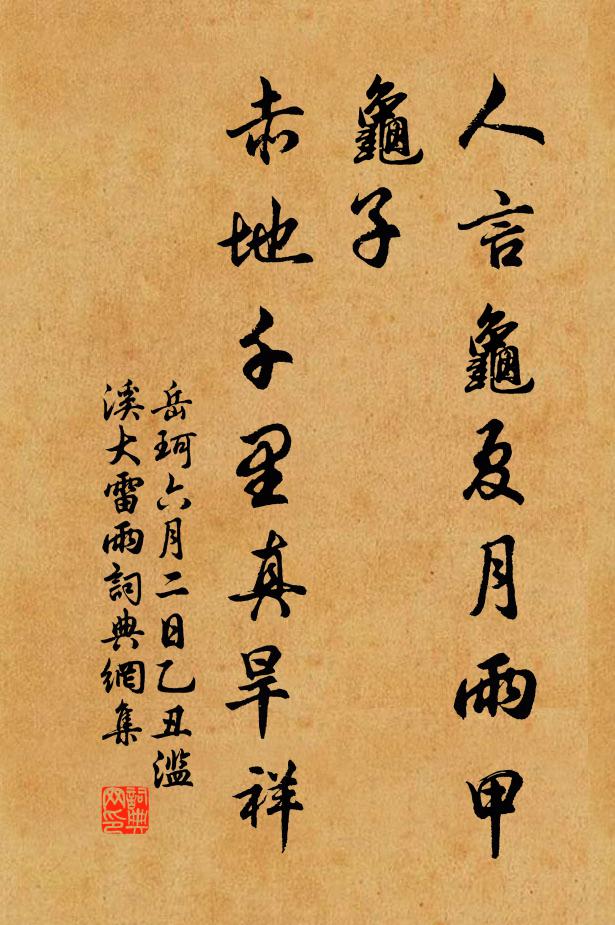 人言龜夏月雨甲
龜子
赤地千里真旱祥
岳珂六月二日乙丑滥
溪大雷雨詞典網集
詞典
网印